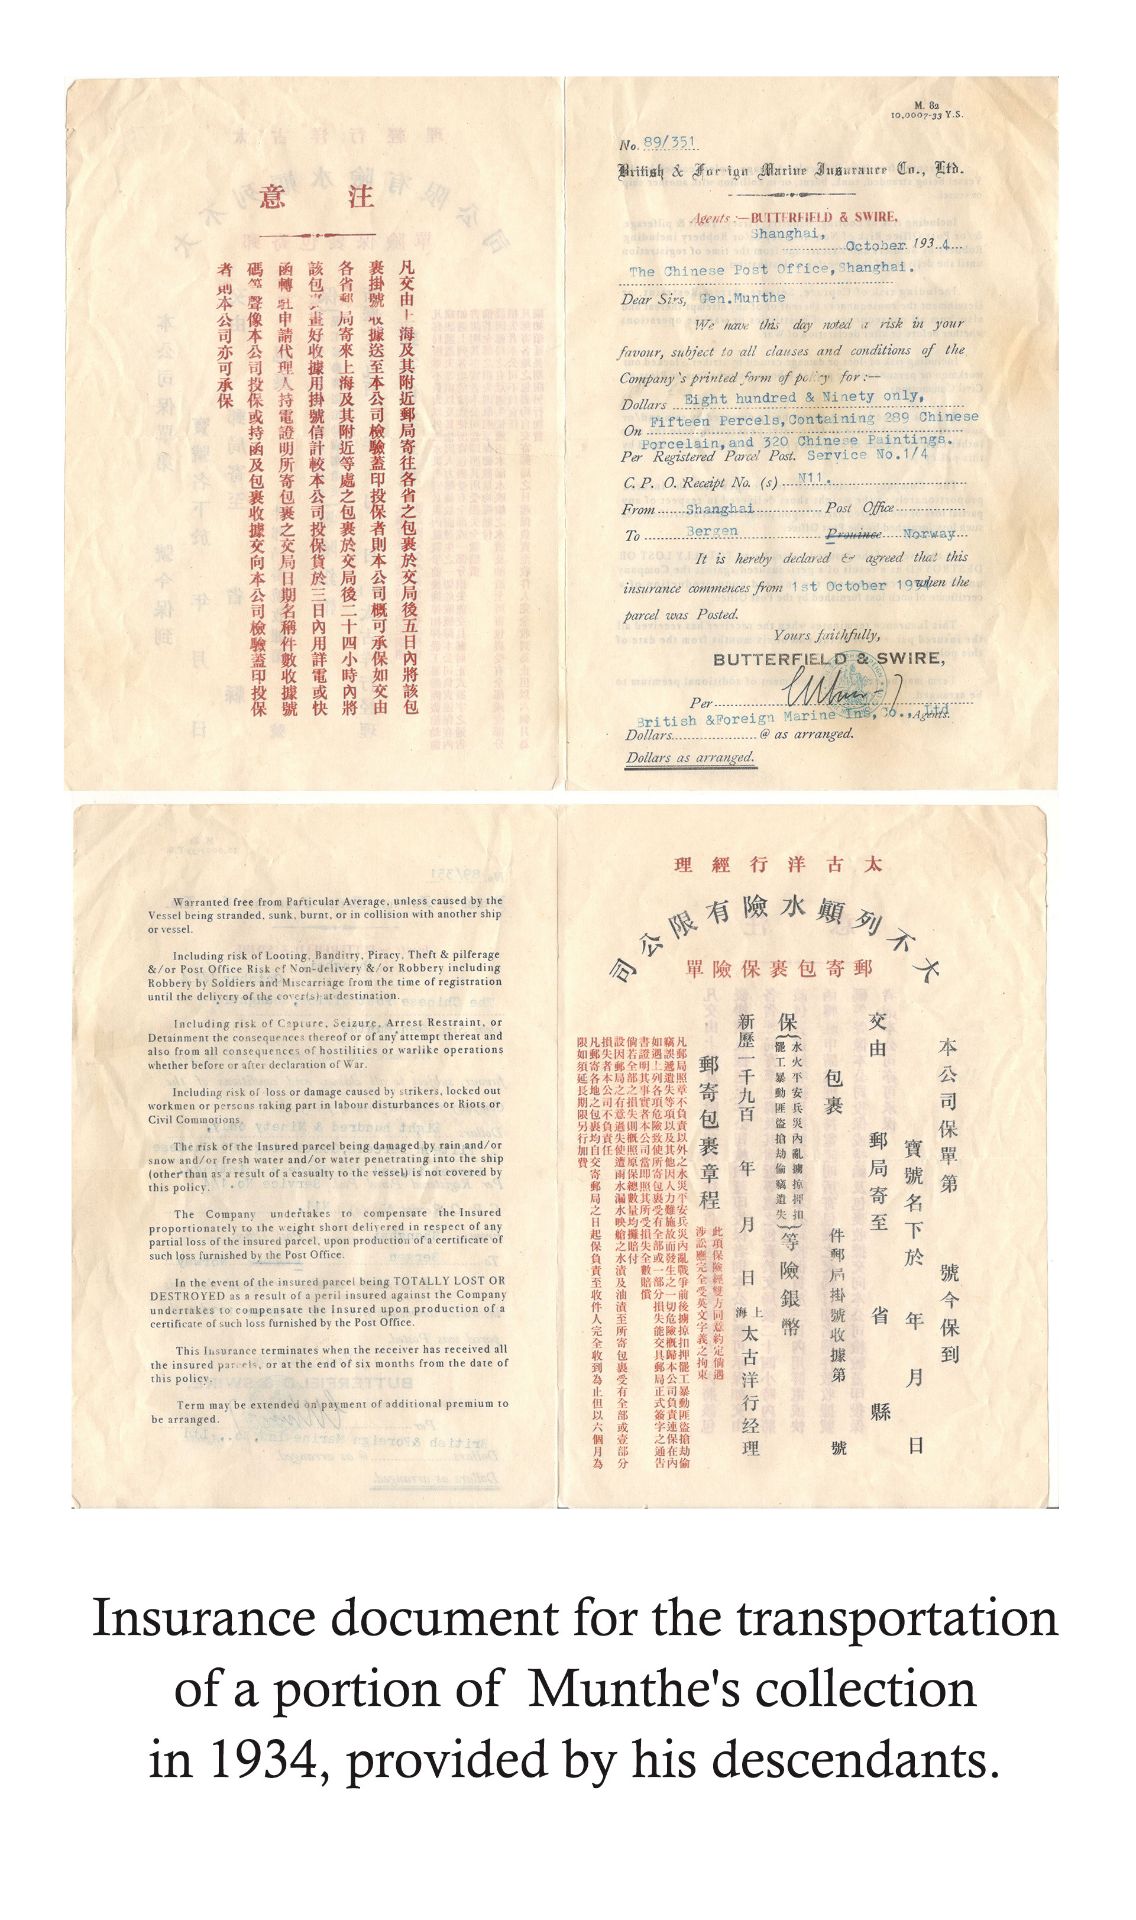 意 注
凡交由上海及其附近郵局寄往各省之包裹於交局後五日內將該包
裹掛號收據送至本公司檢驗蓋印投保者則本公司概可承保如交由
各省郵局寄來上海及其附近等處之包裹於交局後二十四小時內將
該包裹畫好收據用掛號信計較本公司投保貨於三日內用詳電或快
函轉駐申請代理人持電證明所寄包裹之交局日期名稱件數收據號
碼等聲像本公司投保或持函及包裹收據交向本公司檢驗蓋印投保
者則本公司亦可承保
M. 82
10,0007-33 Y.S.
No. 89/351
British & Foreign Marine Insurance Co., Ltd.
Agents :—BUTTERFIELD & SWIRE,
Shanghai,
October 1934
The Chinese Post Office, Shanghai.
Dear Sirs, Gen.Munthe
We have this day noted a risk in your
favour, subject to all clauses and conditions of the
Company's printed form of policy for :—
Dollars Eight hundred & Ninety only,
On Fifteen Percels, Containing 289 Chinese
Porcelain, and 320 Chinese Paintings.
Per Registered Parcel Post. Service No.1/4
C. P. O. Receipt No. (s) N11.
From Shanghai Post Office
To Bergen Province Norway
It is hereby declared & agreed that this
insurance commences from 1st October 1934 when the
parcel was Posted.
Yours faithfully,
BUTTERFIELD & SWIRE,
Per
British &Foreign Marine Ins, Co., Ltd Agents.
Dollars @ as arranged.
Dollars as arranged.
Warranted free from Particular Average, unless caused by the
Vessel being stranded, sunk, burnt, or in collision with another ship
or vessel.
Including risk of Looting, Banditry, Piracy, Theft & pilferage
&/or Post Office Risk of Non-delivery &/or Robbery including
Robbery by Soldiers and Miscarriage from the time of registration
until the delivery of the cover(s) at destination.
Including risk of Capture, Seizure, Arrest Restraint, or
Detainment the consequences thereof or of any attempt thereat and
also from all consequences of hostilities or warlike operations
whether before or after declaration of War.
Including risk of loss or damage caused by strikers, locked out
workmen or persons taking part in labour disturbances or Riots or
Civil Commotions.
The risk of the Insured parcel being damaged by rain and/or
snow and/or fresh water and/or water penetrating into the ship
(other than as a result of a casualty to the vessel) is not covered by
this policy.
The Company undertakes to compensate the Insured
proportionately to the weight short delivered in respect of any
partial loss of the insured parcel, upon production of a certificate of
such loss furnished by the Post Office.
In the event of the insured parcel being TOTALLY LOST OR
DESTROYED as a result of a peril insured against the Company
undertakes to compensate the Insured upon production of a
certificate of such loss furnished by the Post Office.
This Insurance terminates when the receiver has received all
the insured parcels, or at the end of six months from the date of
this policy.
Term may be extended on payment of additional premium to
be arranged.
理經行洋古太
司公限有險水顚列不大
單險保裹包寄郵
本公司保單第 號今保到
寶號名下於 年 月 日
交由 郵局寄至 省 縣
包裹 件郵局掛號收據第 號
保(水火平安兵災內亂擄掠押扣
罷工暴動匪盜搶劫偷竊遺失)等險銀幣
新歷一千九百 年 月 日 上海太古洋行经理
郵寄包裹章程
此項保險經雙方同意約定倘遇
涉訟應完全受英文字義之拘束
凡郵局照章不負責以外之水災平安兵災內亂戰爭前後擄掠扣押罷工暴動匪盜搶劫偷
竊誤遞遺失等項以及其他因人力難施故而發生之一切危險概歸本公司負責連保在內
如遇上列各項危險致使所寄包裹受有全部或一部分損失能交具郵局正式簽字之通告
書證明其事實者本公司當即照其所受損失全數賠償
倘若全部之損失則概照原保總數量均攤賠付
設因郵局之有意過失使遭雨水漏水映艙之水漬及油漬至所寄包裹受有全部或壹部分
損失者本公司不負責任
凡郵寄各地之包裹均自交寄郵局之日起保負責至收件人完全收到為止但以六個月為
限如須延長期限另行加費
Insurance document for the transportation
of a portion of Munthe's collection
in 1934, provided by his descendants.